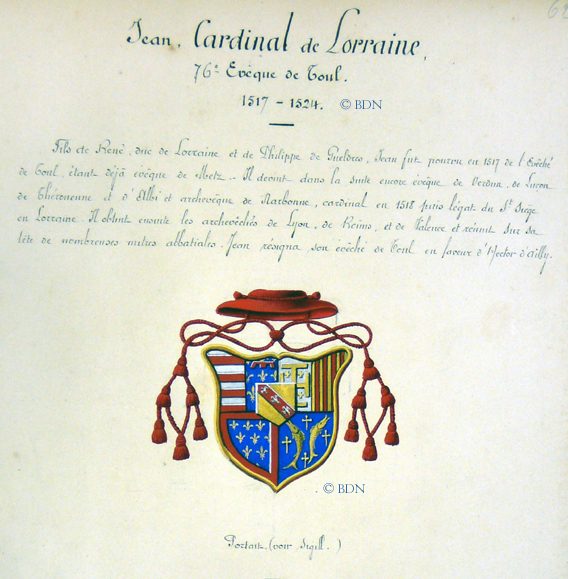 Jean, Cardinal de Lorraine,
76e Evêque de Toul.
1517 - 1524. © BDN
Fils de René, duc de Lorraine et de Philippe de Gueldres, Jean fut pourvu en 1517 de l'Evêché
de Toul, étant déjà évêque de Metz - Il devint dans la suite encore évêque de Verdun, de Luçon
de Thérouenne et d'Albi et archevêque de Narbonne, cardinal en 1518 puis légat du St Siège
en Lorraine. Il obtint ensuite les archevêchés de Lyon, de Reims, et de Valence et réunit sur sa
tête de nombreuses mitres abbatiales. Jean résigna son évêché de Toul en faveur d'Hector d'Ailly.
© BDN
(voir Sigill.)